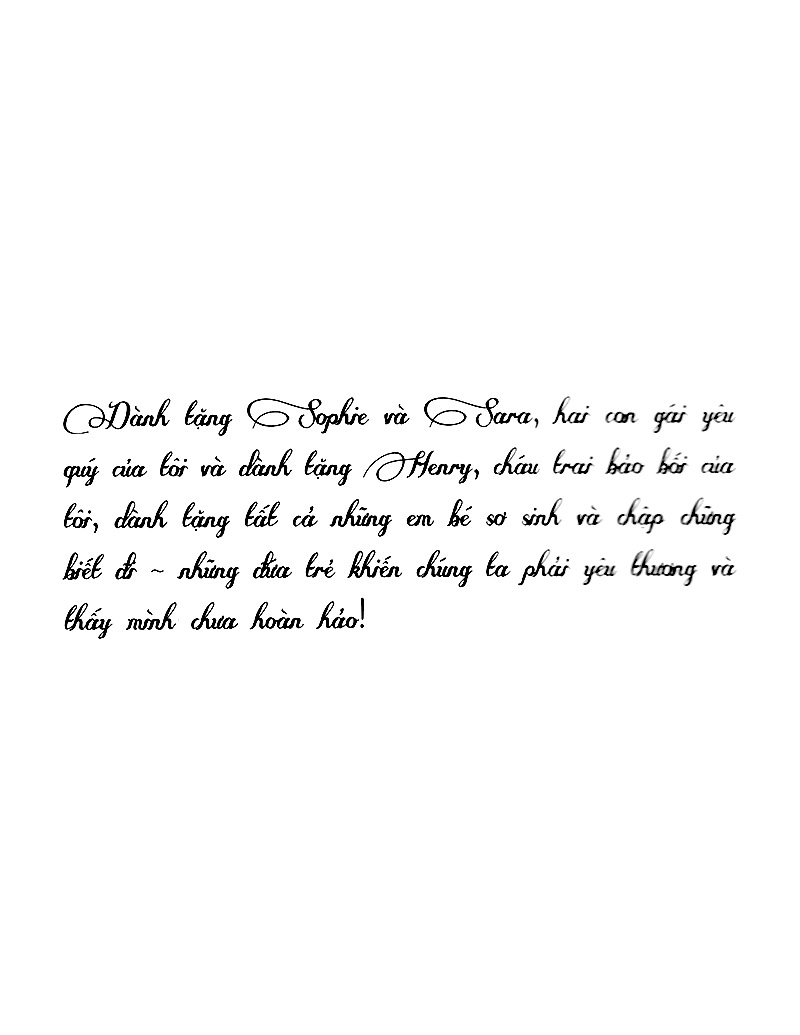 Dành tặng Sophie và Sara, hai con gái yêu
quý của tôi và dành tặng Henry, cháu trai bảo bối của
tôi, dành tặng tất cả những em bé sơ sinh và chập chững
biết đi ~ những đứa trẻ khiến chúng ta phải yêu thương và
thấy mình chưa hoàn hảo!